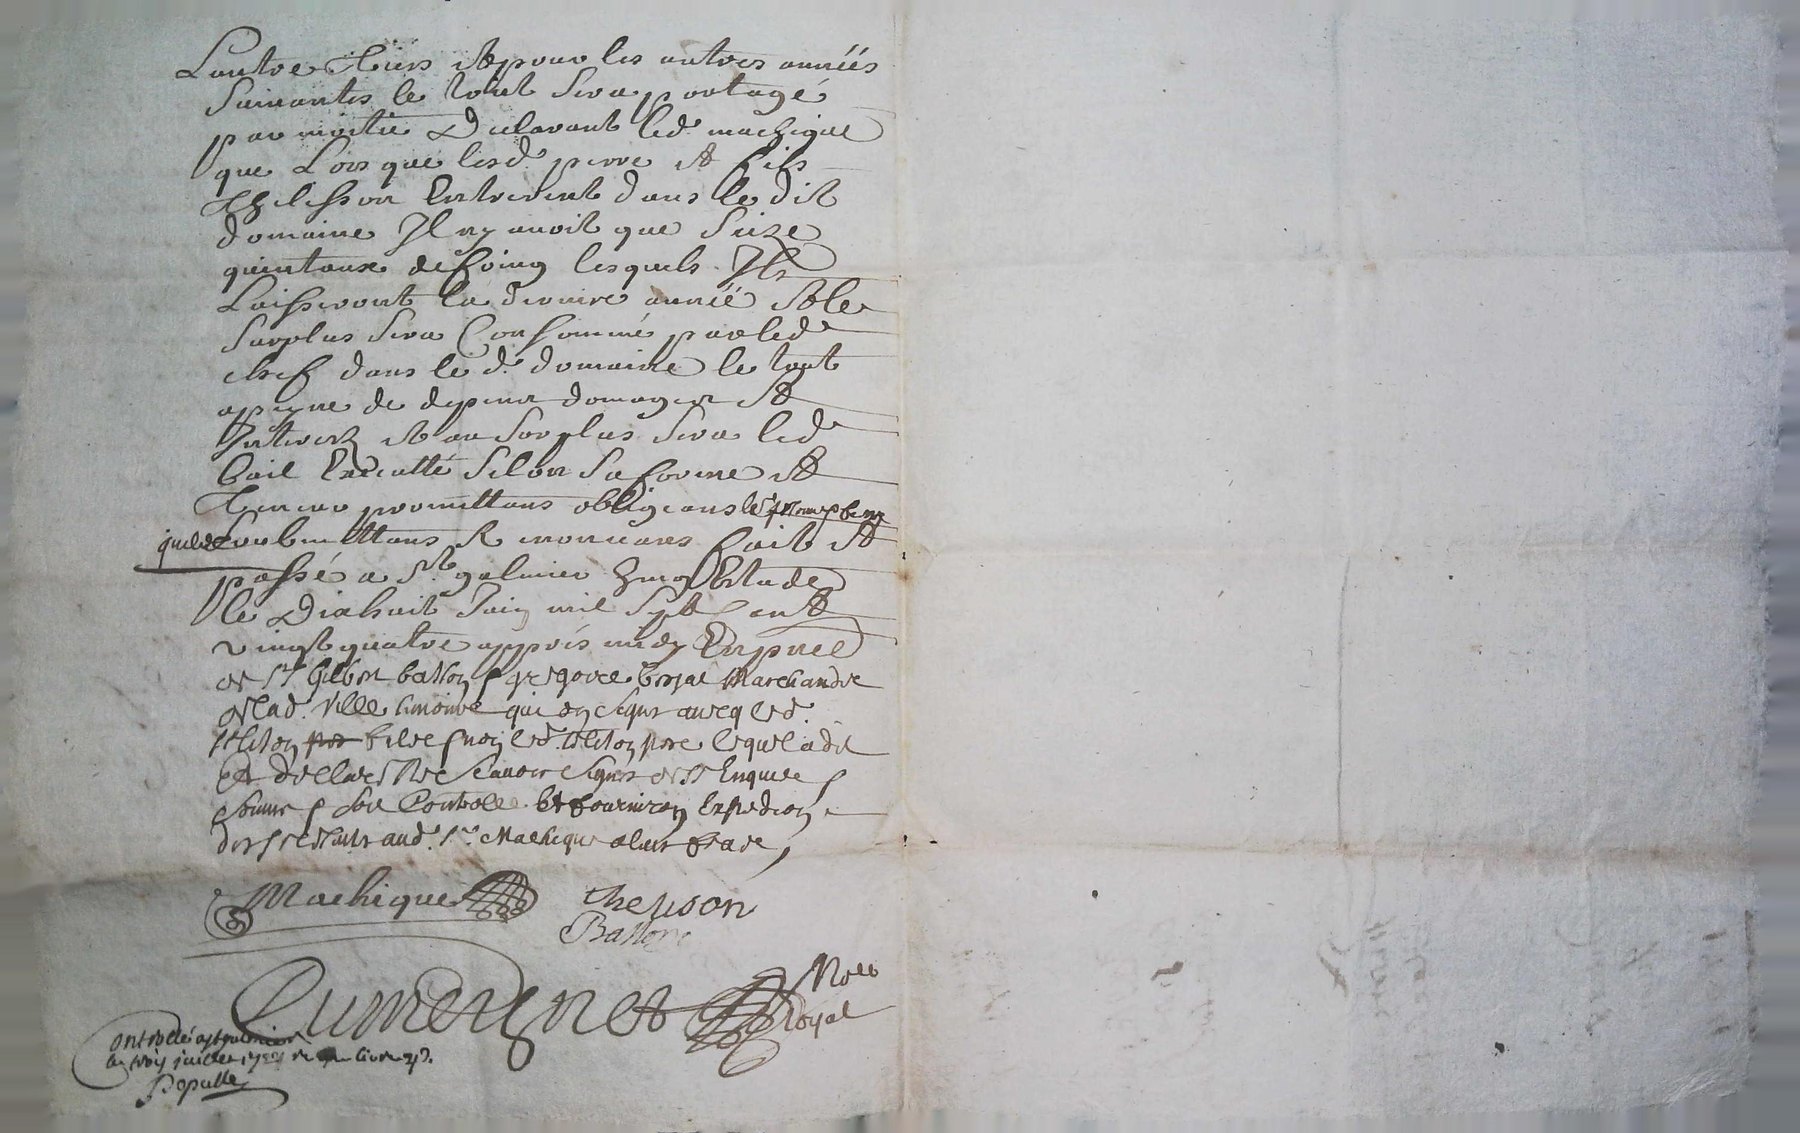 Lautre tiers et pour les autres années
suivantes le tout sera partagé
par moitié Declarant led. machique
que Lors que lesd. pere et fils
Thelisson Entrerent dans le dit
domaine Il ny avoit que seize
quintaux de foing lesquels Ils
Laisseront la derniere année et le
surplus sera Consommé par led
chef dans le d. domaine le tout
a peyne de depens domages et
Interez et au surplus sera led
bail Executté selon sa forme et
Teneur promettans obligeans
soubmettans Renoncans fait et
passé a St. galmier En mon Estude
le Dixhuit Juin mil sept cent
vingt quatre appres midy En pnce
de sr. Gilbert balley gregoire Marchands de
de lad. ville qui ont signé avecq led.
pere lequel a dit
et declare ne scavoir signer de ce Enquis
Soient Controlle et fourniron Expedion
aud. sr. Machique a leur frais
Machique Thelison
Balley
Dumeygnet Nore
Royal
Controllé a st galmier
le trois juillet
Populle